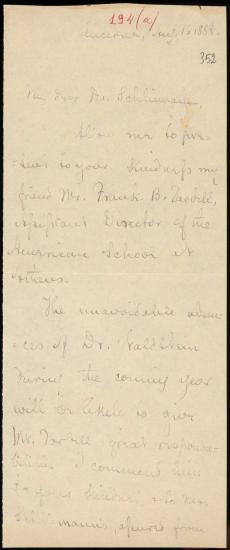 194 (a)
Lucerne, Aug. 15 1888.
352
My dear Dr. Schliemann,
Allow me to pre-
-sent to your kindness my
friend Mr. Frank B. Tarbell,
Assistant Director of the
American School at
Athens.
The unavoidable absen-
ces of Dr. Waldstein
during the coming year
will be likely to give
Mr. Tarbell great responsi-
bilities. I commend him
to your kindness & to Mrs.
Schliemann's, assured from